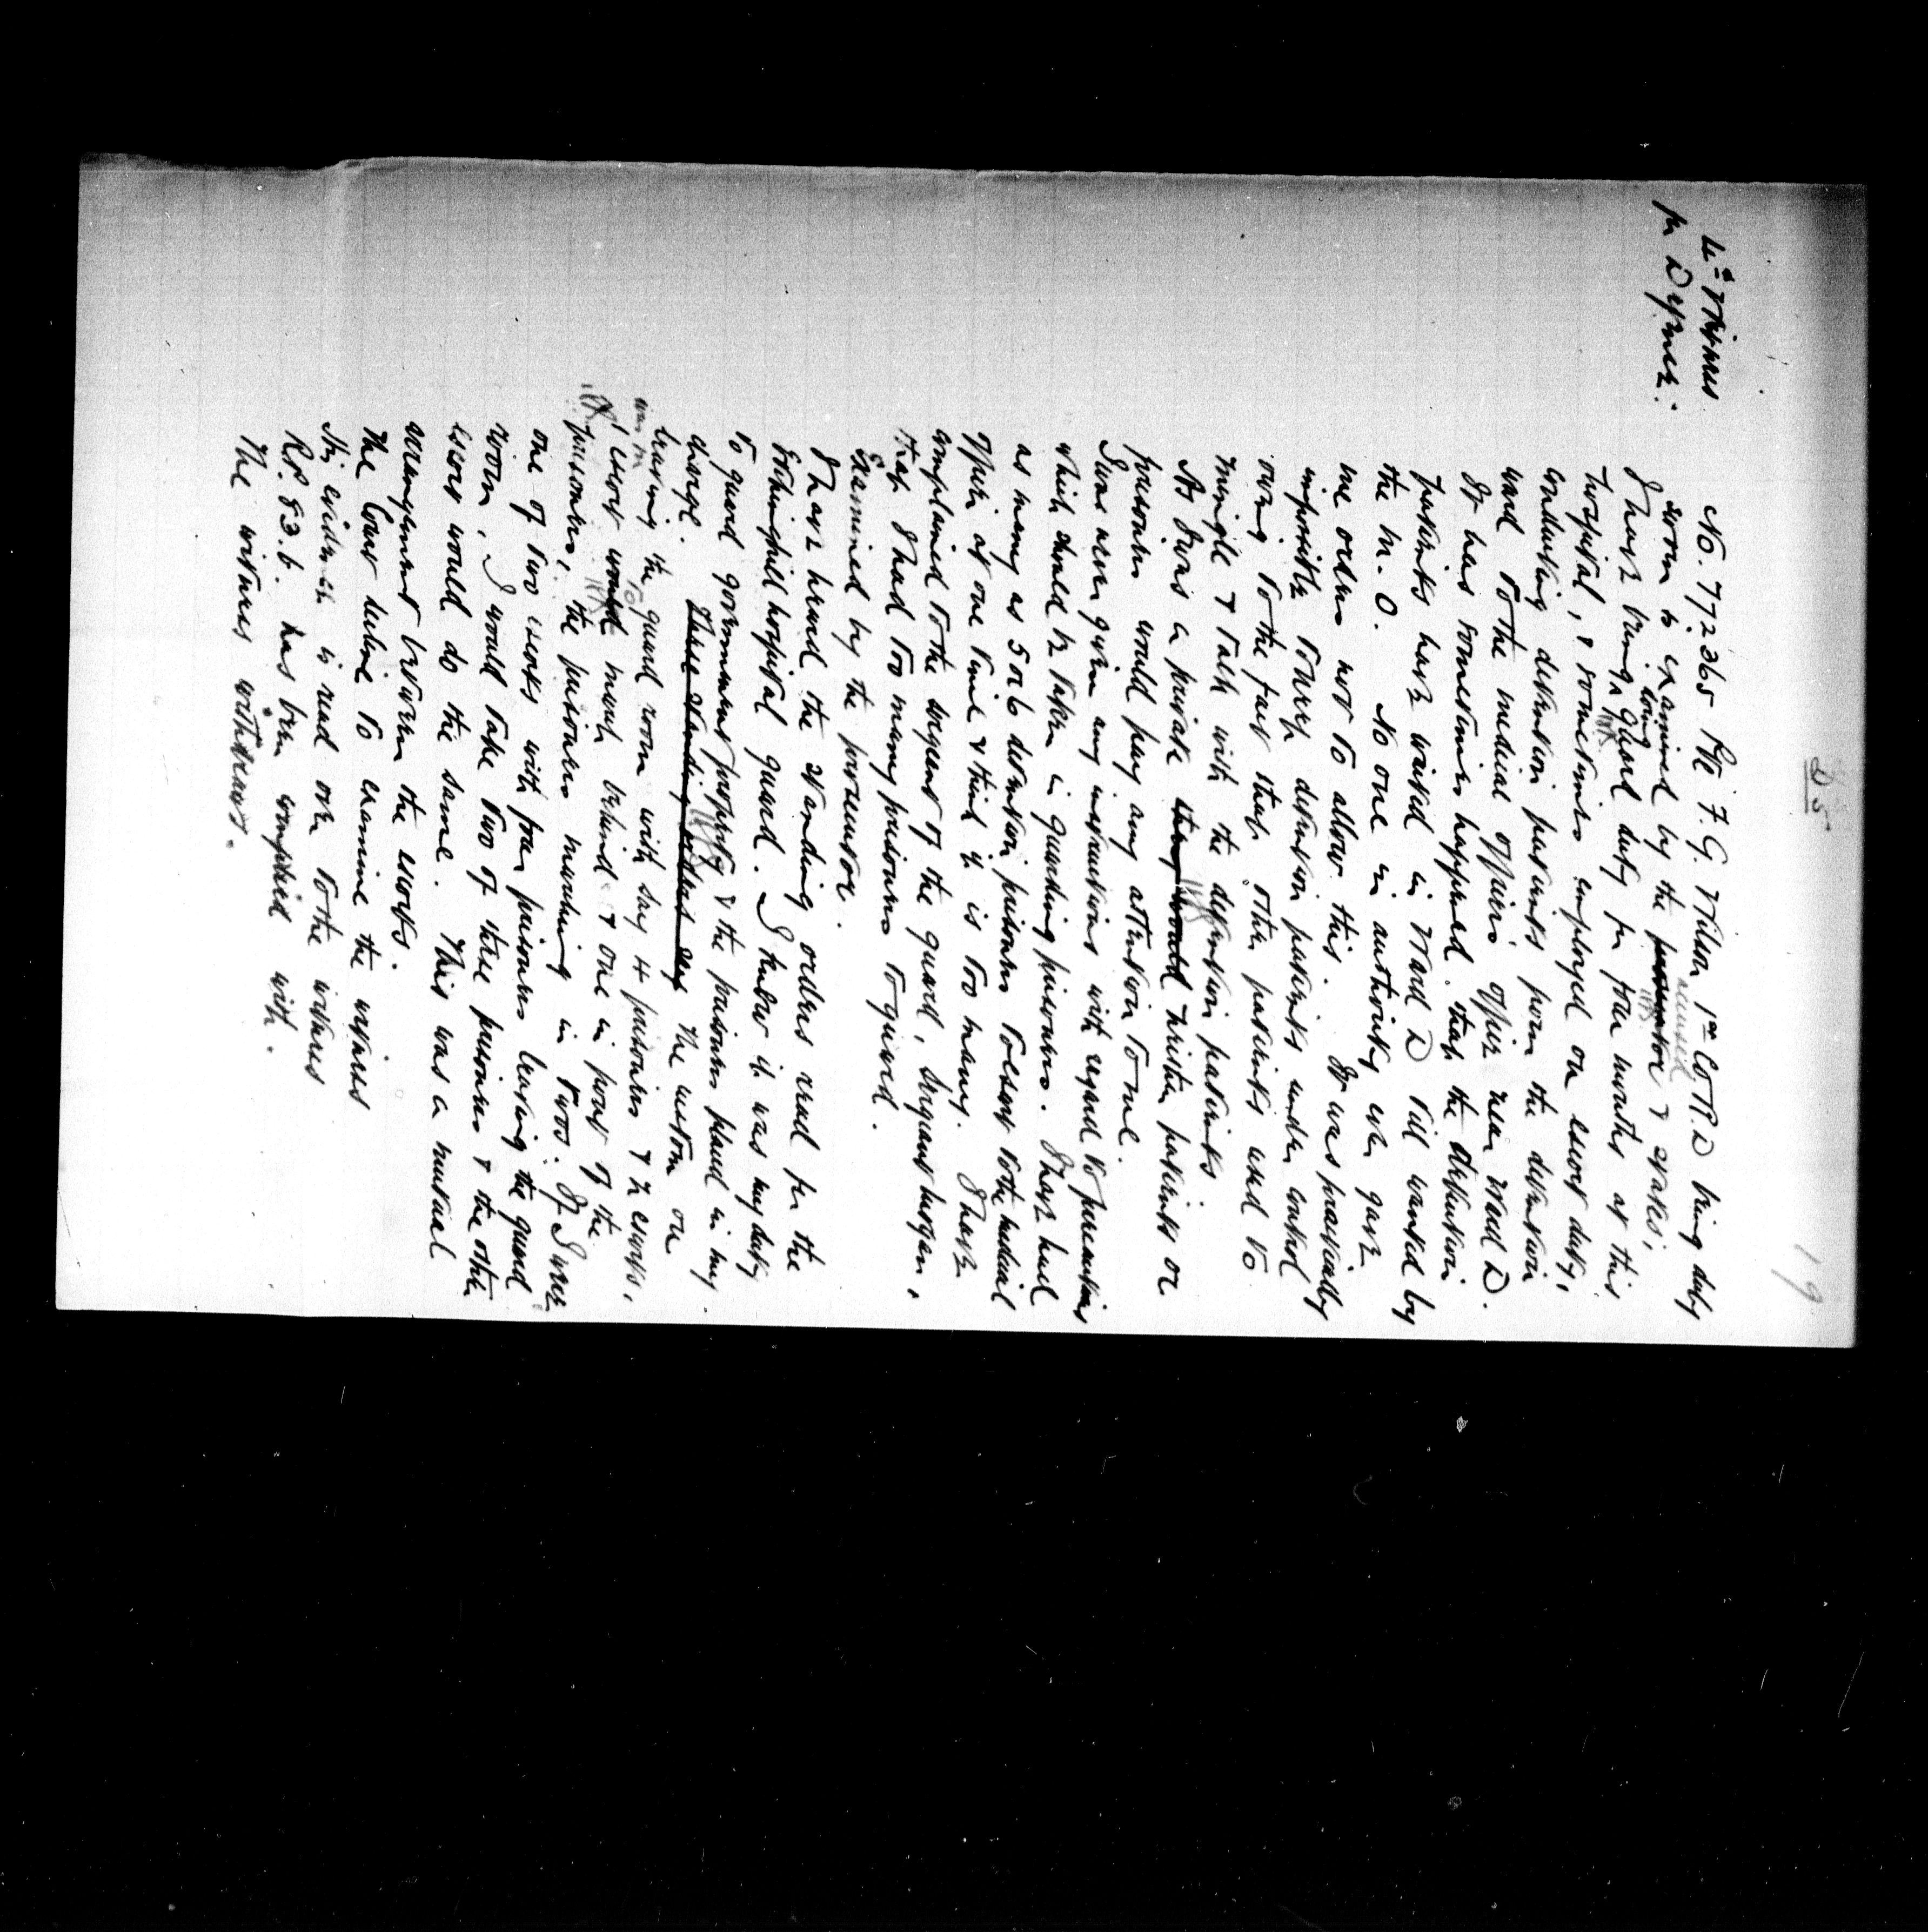 D5
19
4th Witness
for Defence.
No. 772365 Pte F. G. Wilson 1st C.O.R.D being duly
sworn is examined by the prosecutor accused & states;
I have been doing guard duty for four months at this
hospital, & sometimes employed on escort duty,
conducting detention patients from the detention
ward to the medial officers office near Ward D.
It has sometimes happened that the detention
patients have waited in Ward D till wanted by
the M.O. No one in authority ever gave
me orders not to allow this. It was practically
impossible to keep detention patients under control
owing to the fact that other patients used to
mingle & talk with the detention patients
As I was a private they would neither patients or
prisoners would pay any attention to me.
I was never given any instructions with regard to precautions
which should be taken in guarding prisoners. I have had
as many as 5 or 6 detention prisoners to escort to the medical
officer at one time & think it is too many. I have
complained to the sergeant of the guard, Sergeant
that I had too many prisoners to guard.
Examined by the prosecutor.
I have heard the standing orders read for the
Etchinghill hospital guard. I know it was my duty
to guard government property & the prisoners placed in my
charge. These standing orders say The custom on
leaving the guard room with say 4 prisoners & 2 escorts,
was for 1 escort would to march behind & one in front of the
prisoners, the prisoners marching in twos. If I were
one of two escorts with four prisoners leaving the guard
room, I would take two of these prisoners & the other
escort would do the same. This was a mutual
arrangement between the escorts.
The Court decline to examine the witness
His evidence is read over to the witness
R.P. 83.b. has been complied with.
The witness withdraws.